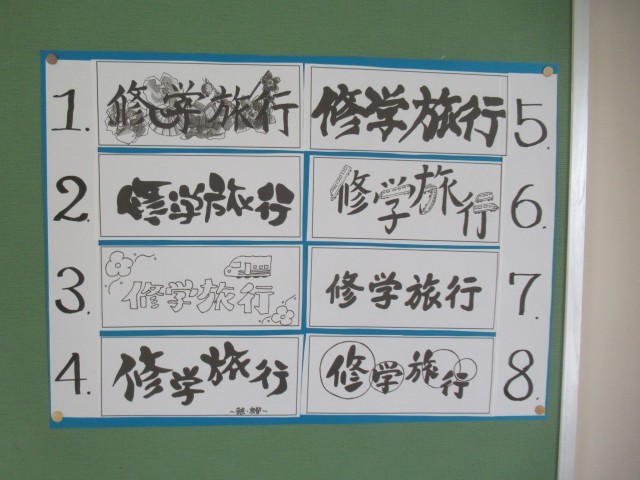 1. 修学旅行
2. 修学旅行
3. 修学旅行
4. 修学旅行
修学旅行 5.
修学旅行 6.
修学旅行 7.
修学旅行 8.